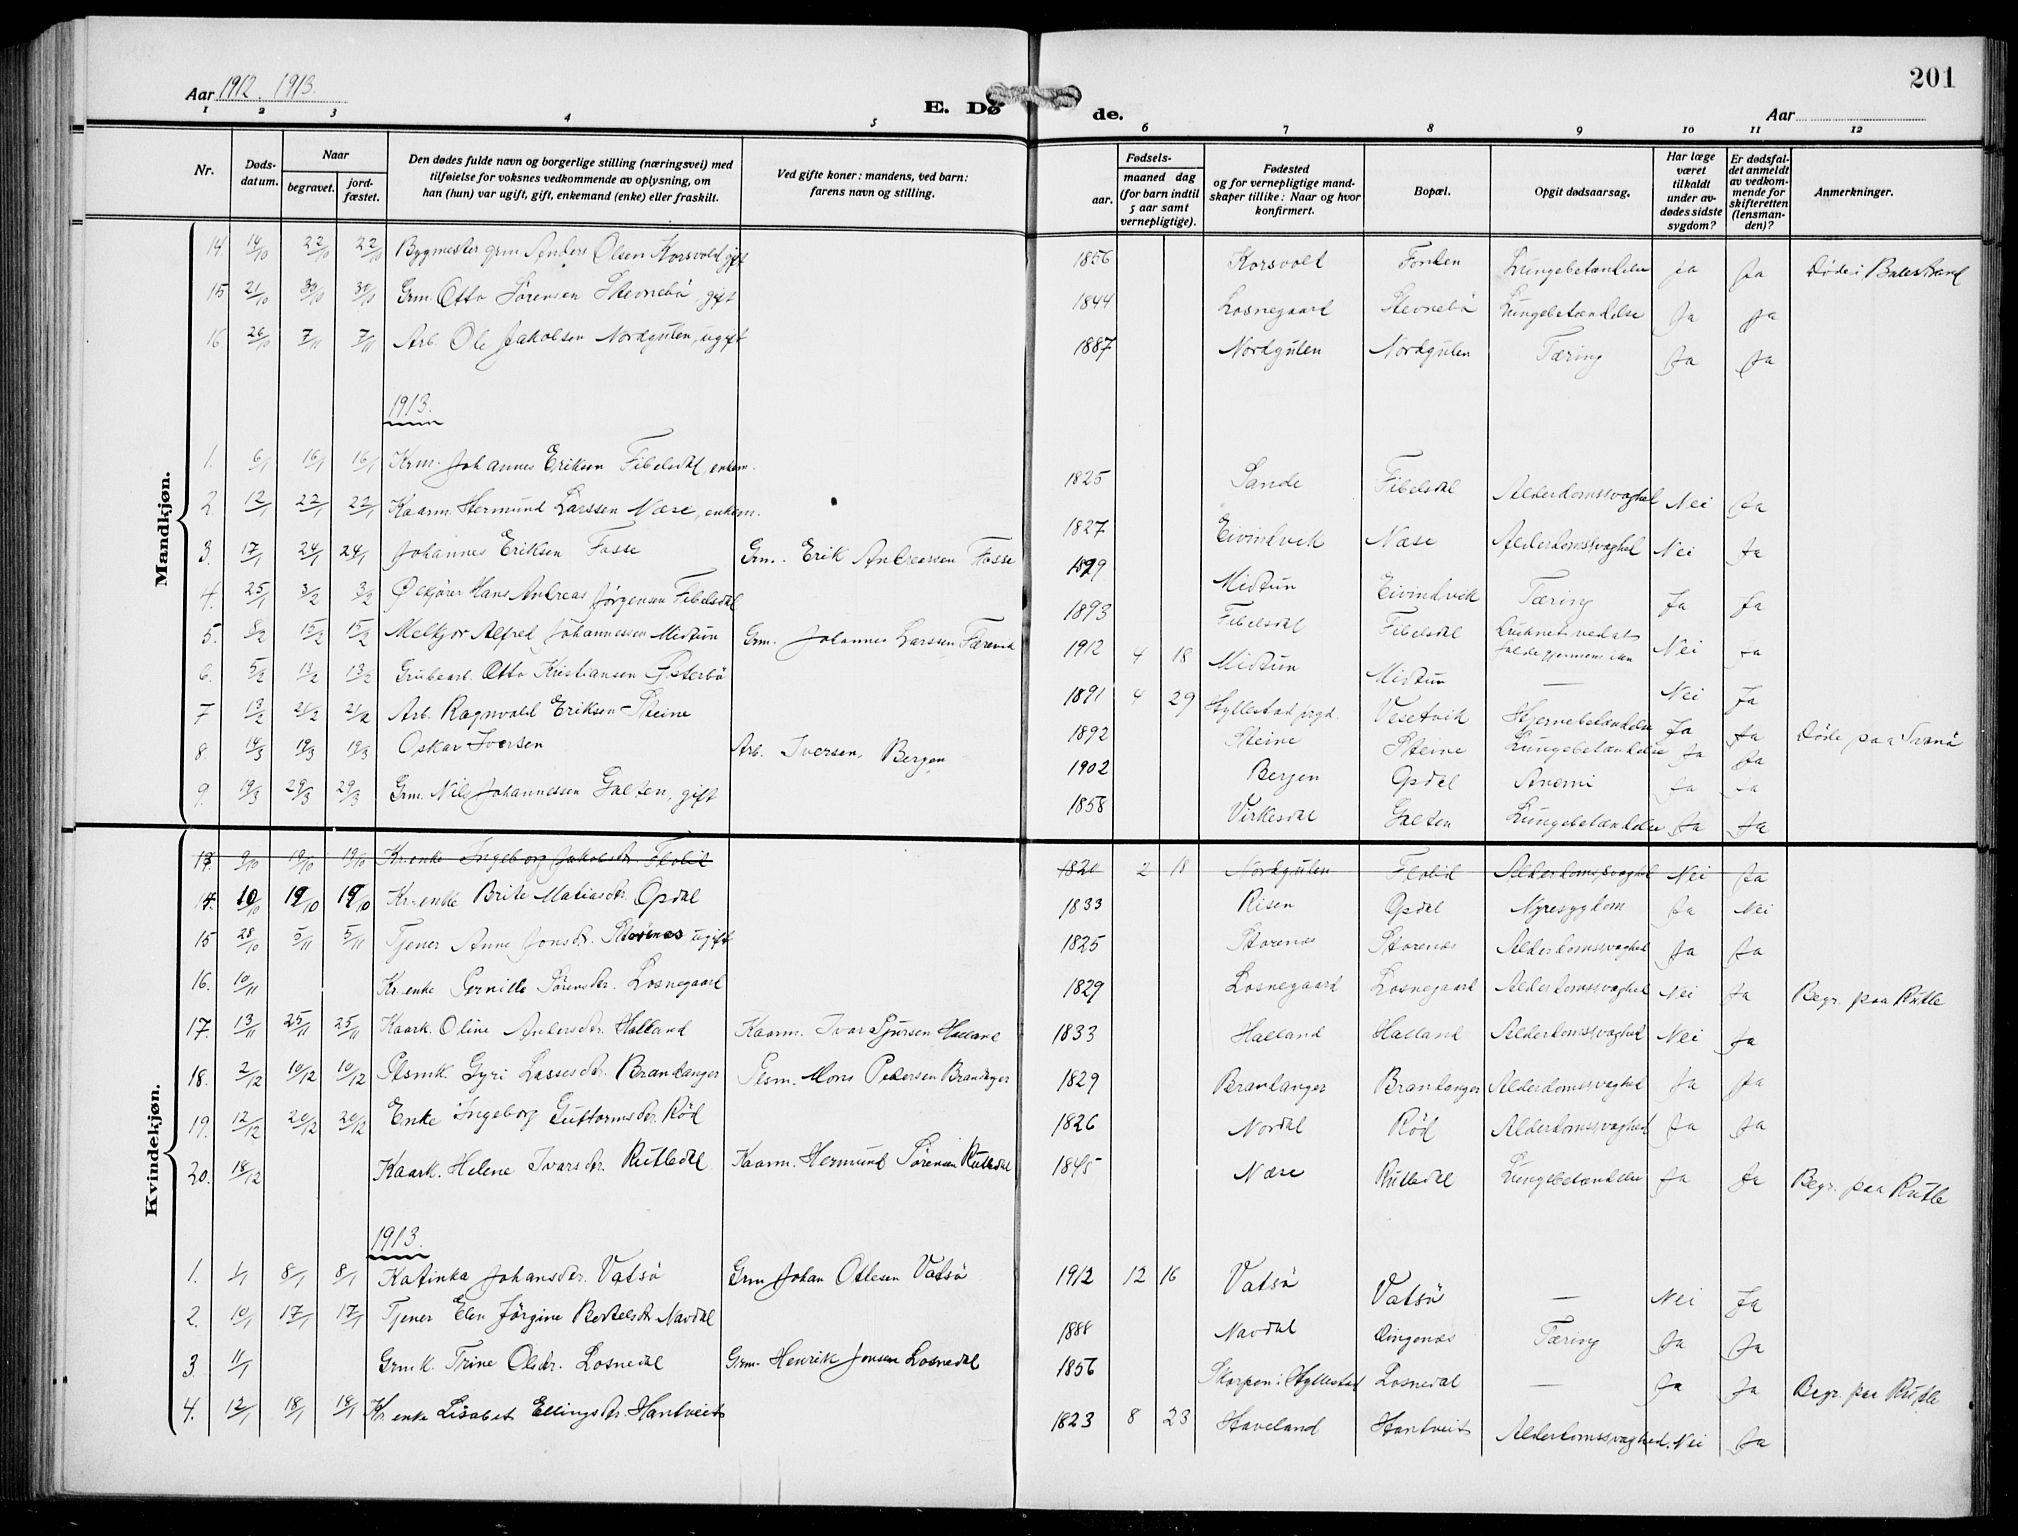 201
Aar 1912. 1913.
E. Dø de.
Aar
1 2 3 4 5 6 7 8 9 10 11 12
Nr.
Døds-datum.
Naar
begravet.
jord-fæstet.
Den dødes fulde navn og borgerlige stilling (næringsvei) med tilføielse for voksnes vedkommende av oplysning, om han (hun) var ugift, gift, enkemand (enke) eller fraskilt.
Ved gifte koner: mandens, ved barn: farens navn og stilling.
Fødsels-
aar.
maaned dag
(for barn indtil 5 aar samt vernepligtige).
Fødested og for vernepligtige mandskaper tillike: Naar og hvor konfirmert.
Bopæl.
Opgit dødsaarsag.
Har læge været tilkaldt under avdødes sidste sygdom?
Er dødsfaldet anmeldt av vedkommende for skifteretten (lensmanden)?
Anmerkninger.
Mandkjøn.
14. 14/10 22/10 22/10 Bygmester grm. Anders Olsen Korsvold gift 1856 Korsvold Lungebetændelse Ja Ja Døde i Balestrand
15 21/10 30/10 30/10 Grm. Otto Sørensen Stevnebö, gift 1844 Losnegaard Stevnebö Lungebetændelse Ja Ja
16 26/10 7/11 7/11 Arb. Ole Jakobsen Nordgulen, ugift 1887 Nordgulen Nordgulen Tæring Ja Ja
1913.
1. 6/1 16/1 16/1 Krm. Johannes Eriksen Fibelsdal, enkem. 1825 Sande Fibelsdal Alderdomssvaghed Nei Ja
2. 12/1 22/1 22/1 Kaarm. Hermund Larssen Næse, enkem. 1827 Eivindvik Næse Alderdomssvaghed Nei Ja
3. 17/1 24/1 24/1 Johannes Eriksen Fosse Grm. Erik Andreassen Fosse Midtun Eivindvik Tæring Ja Ja
4. 25/1 3/2 3/2 Hans Andreas Jørgensen Fibelsdal 1893 Fibelsdal Fibelsdal Druknet ved at falde gjennem isen Nei Ja
5. 8/2 15/2 15/2 Melkjor Alfred Johannessen Midtun Grm. Johannes Larssen 1912 4 18 Midtun Midtun — Nei Ja
6. 5/2 13/2 13/2 Grubearb. Otto Kristiansen Østerbö 1891 4 29 Hyllestad prgd. Vesetvik Hjernebetændelse Ja Ja Døde paa Svanö
7 13/2 21/2 21/2 Arb. Ragnvald Eriksen Steine 1892 Steine Steine Lungebetændelse Ja Ja
8. 14/3 19/3 19/3 Oskar Iversen Arb. Iversen, Bergen 1902 Bergen Opdal Anemi Ja Ja
9. 19/3 29/3 29/3 Grm. Nils Johannessen Galten, gift 1858 Virkesdal Galten Lungebetændelse Ja Ja
Kvindekjøn.
13. 9/10 19/10 19/10 Kr.enke Ingeborg Jakobsdr. Flolid 1820 2 18 Nordgulen Flolid Alderdomssvaghed Nei Ja
14. 10/10 19/10 19/10 Kr.enke Brite Matiasdr. Opdal 1833 Risen Opdal Nyresygdom Ja Nei
15 28/10 5/11 5/11 Tjener Anne Jonsdr. Storenes ugift 1825 Storenæs Storenæs Alderdomssvaghed Ja Ja
16. 10/11 Kr.enke Pernille Sörensdr. Losnegaard 1829 Losnegaard Losnegaard Alderdomssvaghed Nei Ja Begr. paa Rutle
17. 13/11 25/11 25/11 Kaark. Oline Andersdr. Halland Kaarm. Ivar Sjursen Halland 1833 Halland Halland Alderdomssvaghed Nei Ja
18. 2/12 10/12 10/12 Plsmk. Gyri Lassesdr. Brandanger Plsm. Mons Pedersen Brandanger 1829 Brandanger Brandanger Alderdomssvaghed Ja Ja
19. 12/12 20/12 20/12 Enke Ingeborg Guttormsdr. Röd 1826 Nordal Röd Alderdomssvaghed Ja Ja
20. 18/12 Kaark. Helene Ivarsdr. Rutledal Kaarm. Hermund Sörensen Rutledal 1845 Næse Rutledal Lungebetændelse Ja Ja Begr. paa Rutle
1913.
1. 1/1 8/1 8/1 Katinka Johansdr. Vatsö Grm Johan Ottesen Vatsö 1912 12 16 Vatsö Vatsö — Nei Ja
2. 10/1 17/1 17/1 Tjener Elen Jörgine Bertelsdr Navdal 1888 Navdal Dingenæs Tæring Ja Ja
3 11/1 Grmk. Trine Olsdr. Losnedal Grm. Henrik Jonsen Losnedal 1856 Skorpen i Hyllestad Losnedal — Ja Ja Begr. paa Rutle
4. 12/1 18/1 18/1 Kr.enke Lisabet Ellingsdr. Hantveit 1823 8 23 Haveland Hantveit Alderdomssvaghed. Nei Ja